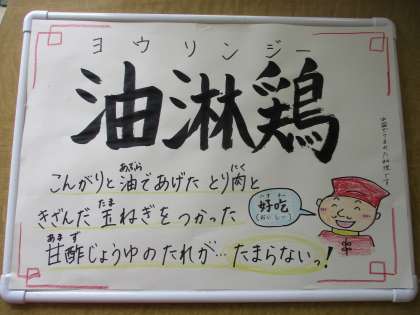 ヨウリンジー
油淋鶏
こんがりと油であげたとり肉と
あぶら
にく
きざんだ玉ねぎをつかった
たま
甘酢じょうゆのたれが…たまらないっ!
あまず
好吃
(おいしい)